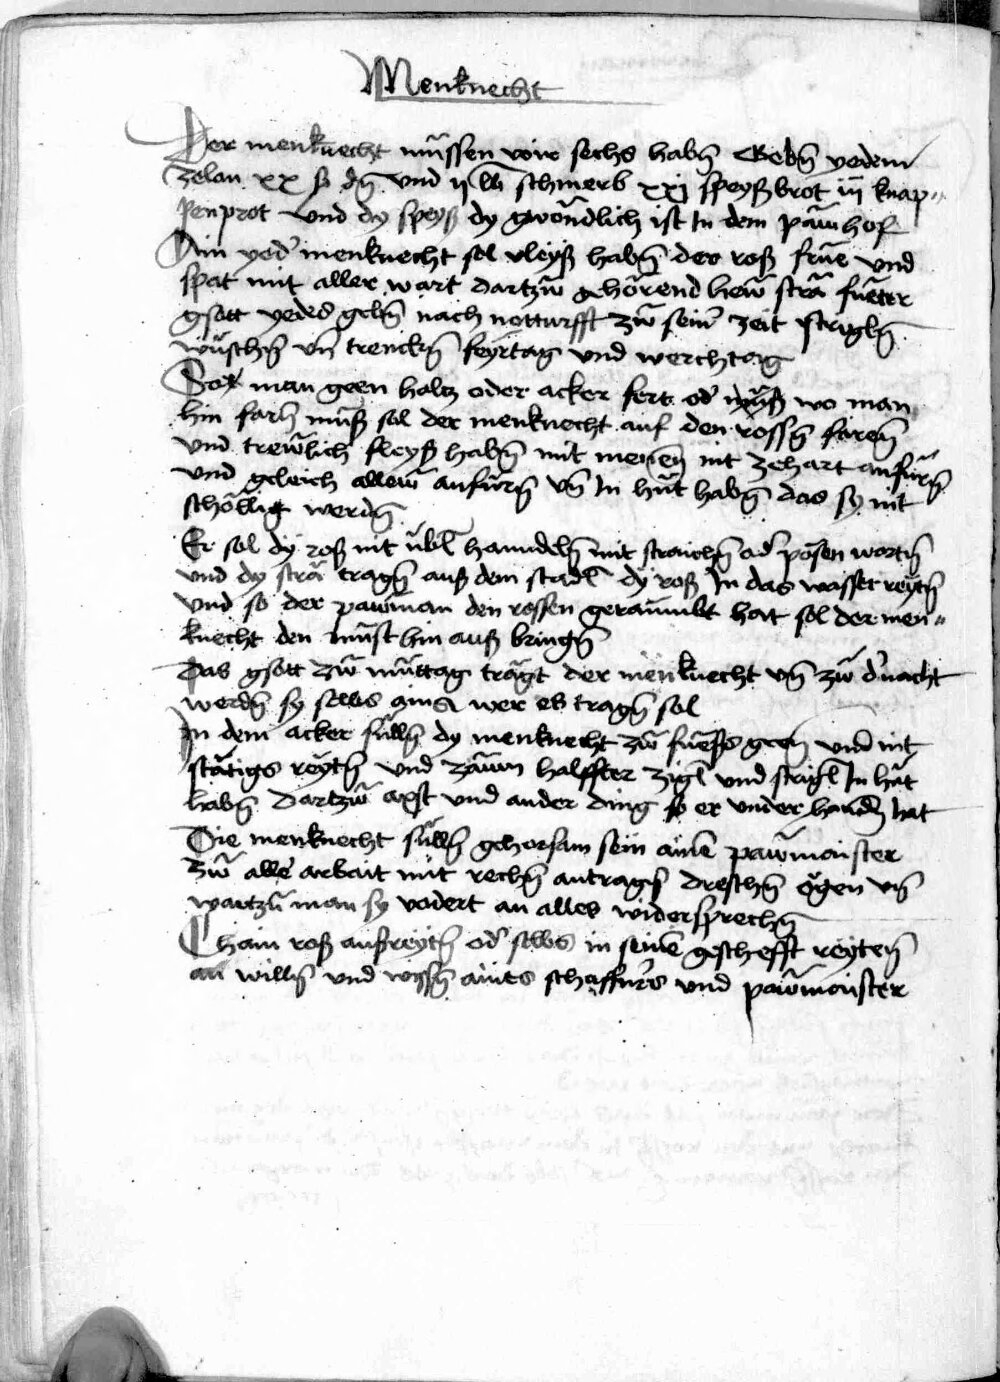 Menknecht
Der menknecht müssen wir sechs habn̄ Gebn̄ yedem
zelan xx ß dn̄ und ij lb schmerb xxj speyßbrot iij knap„
penprot und dy speyß dy gwöndlich ist In dem päwhof
Ain yed' menknecht sol vleyß habn̄ der roß früe und
spat mit aller wart dartzw̄ gehörend hew̄ strä fuetter
gsott yedes gebn̄ nach notturfft zw̄ sein' zeit strigln̄
wüschn̄ vn̄ trenckn̄ feyrtag und werchtag
So man geen holtz oder acker fert od' wo man
hin farn̄ müß sol der menknecht auf den rossn̄ faren̄
und trewlich fleyß habn̄ mit menen̄ nit zehart anfürn̄
und geleich allew anfürn̄ vn̄ In hüt habn̄ das sy nit
schöllig werdn̄
Er sol dy roß nit übl hanndeln̄ mit straichn̄ od' pösen wortn̄
und dy strä tragn̄ auß dem stadl dy roß In das wasser reytn̄
und so der pawman den rossen geraumbt hat sol der men„
knecht den müst hin auß bringn̄
Das gsott zw̄ müttag trägt der menknecht vn̄ zw̄ d' nacht
werdn̄ sy selbs ains wer es tragn̄ sol
In dem acker sülln̄ dy menknecht zw̄ fuesse geen und nit
stätigs reytn̄ und zäwm halffter zigl und strigl In hüt
habn̄ dartzw̄ axst und ander ding so er under handn̄ hat
Die menknecht sülln̄ gehorsam sein ainē pawmaister
zw̄ aller arbait mit rechn̄ antragn̄ dreschn̄ ögen vn̄
wartzu man sy vodert an alles widersprechn̄
Chain roß außreytn̄ od' selbs in seinē geschefft reyten̄
an willn̄ und wissn̄ aines schaffners und pawmaister